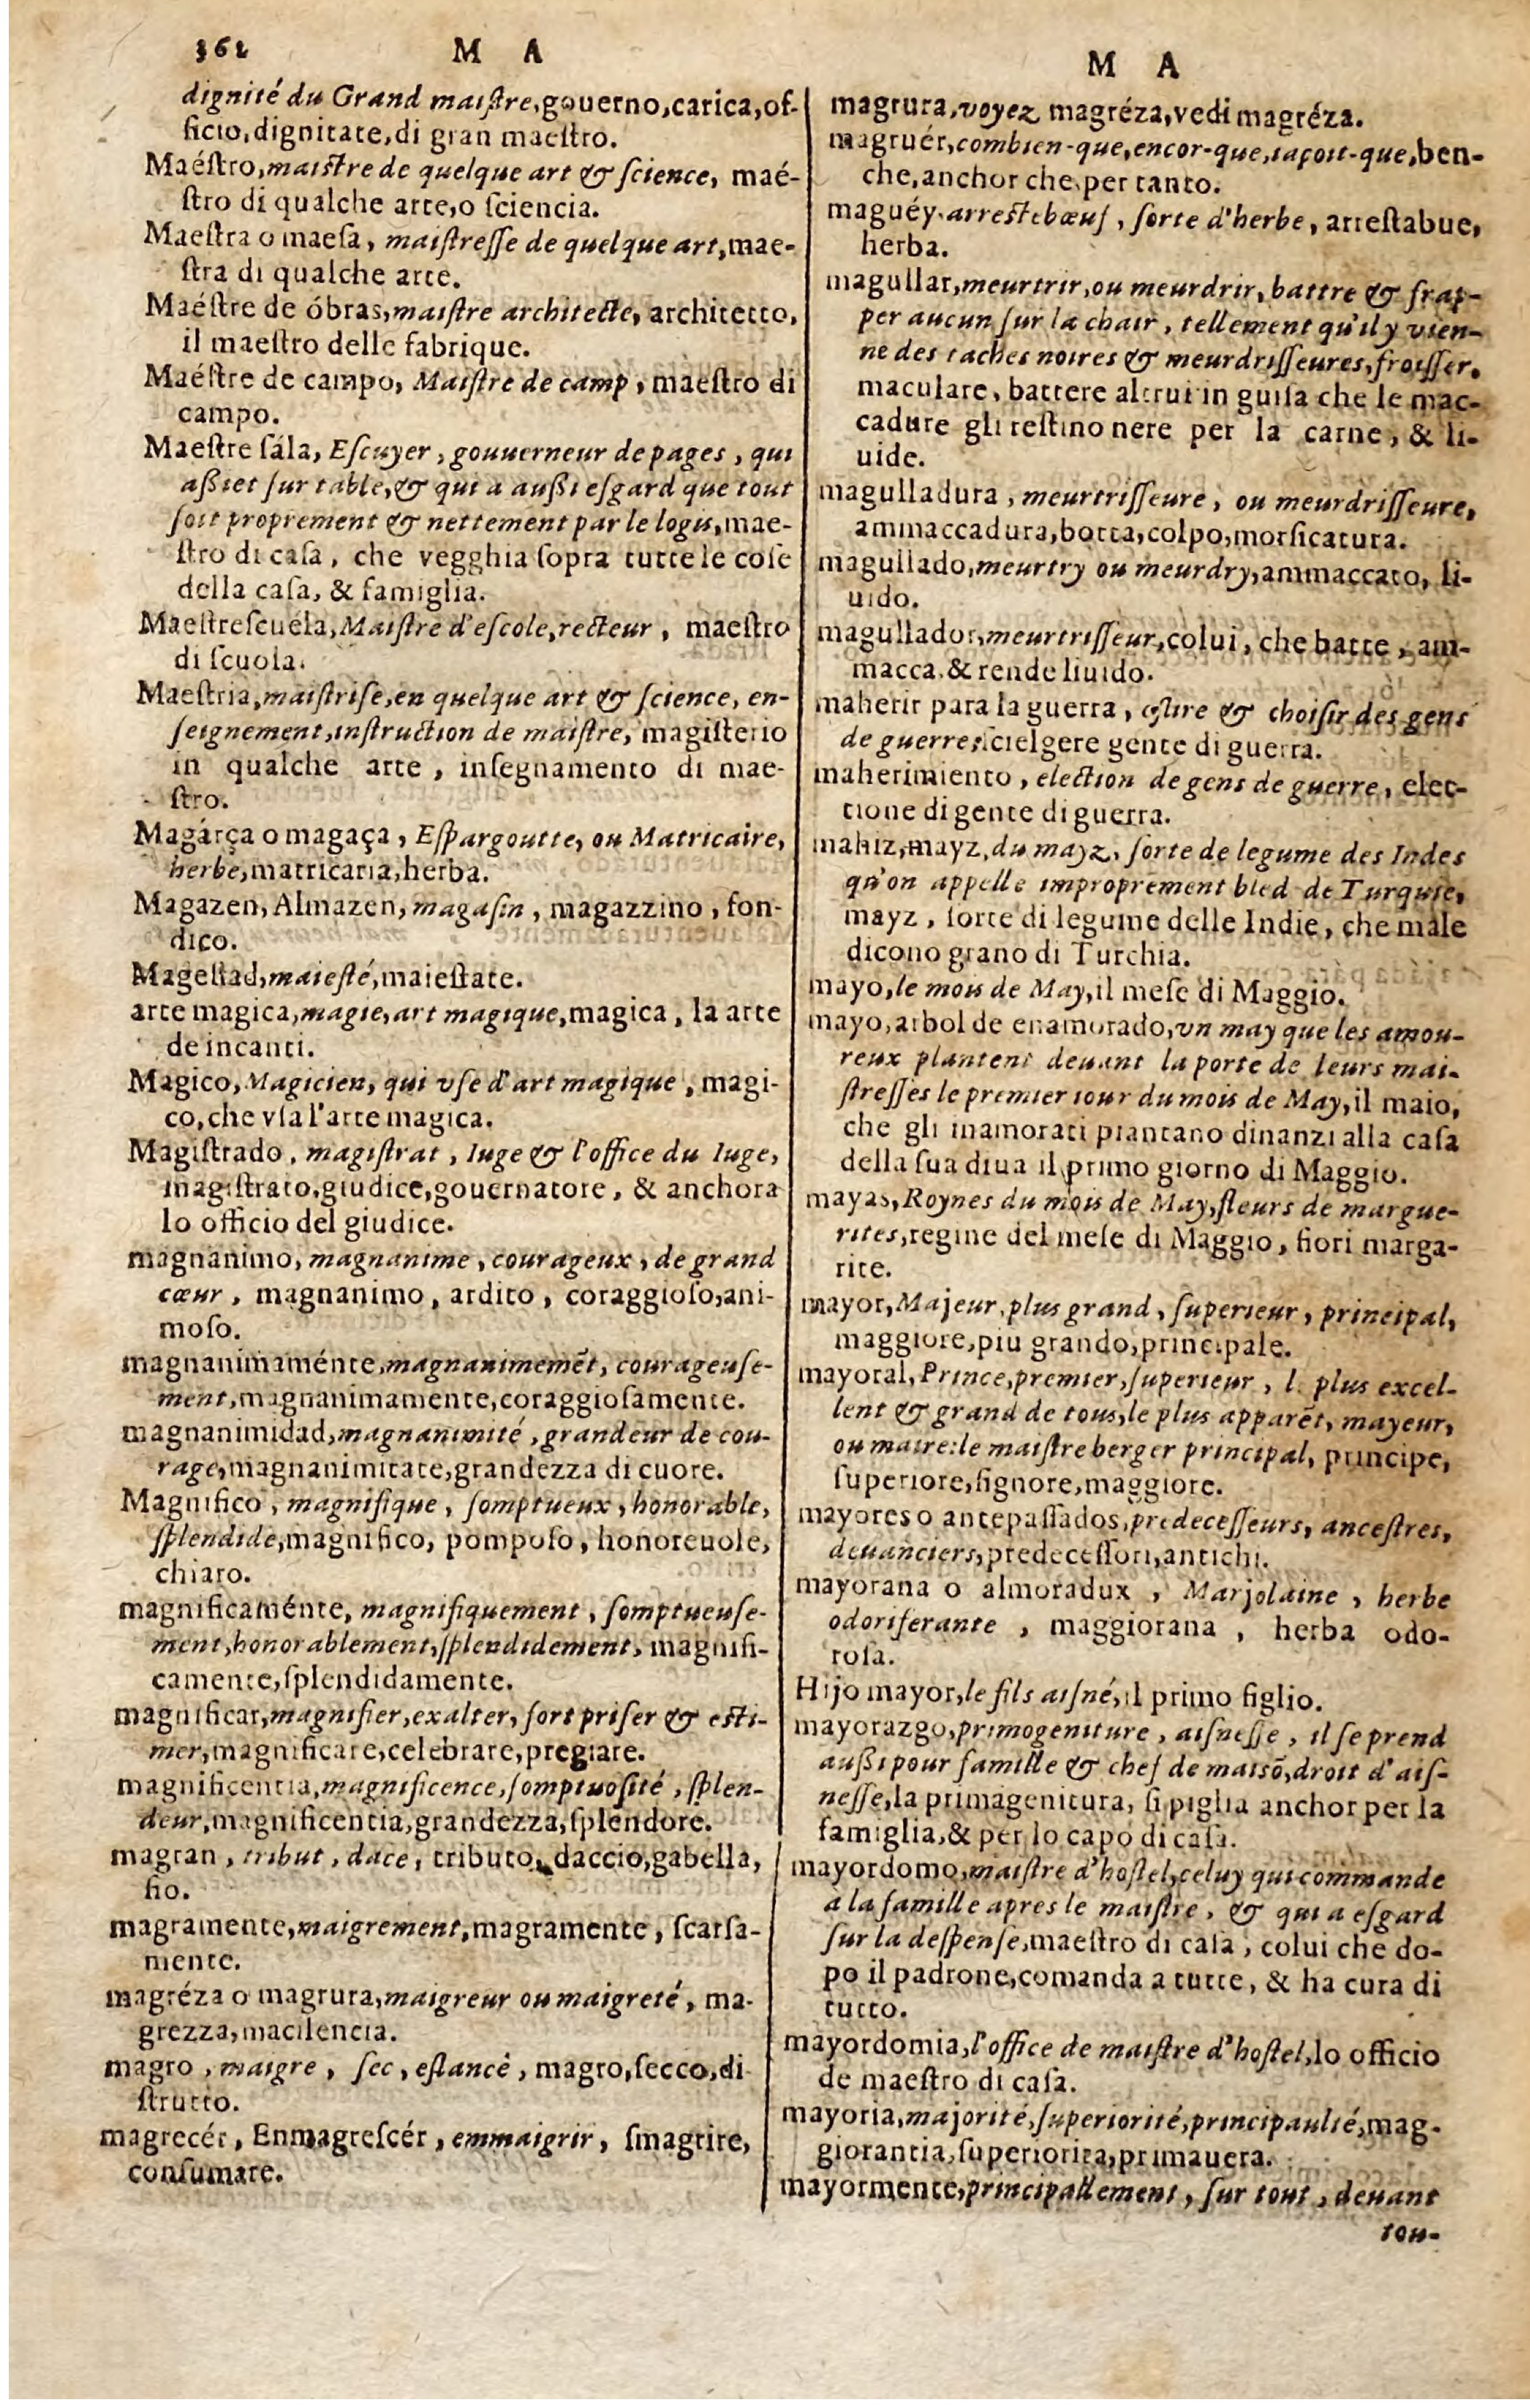 362 M A
dignité du Grand maiſtre,gouerno,carica,of-
ficio,dignitate,di gran maeſtro.
Maéſtro,maiſtre de quelque art & ſcience, maé-
ſtro di qualche arte,o ſciencia.
Maeſtra o maeſa, maiſtreſſe de quelque art,mae-
ſtra di qualche arte.
Maéſtre de óbras,maiſtre architecte, architetto,
il maeſtro delle fabrique.
Maéſtre de campo, Maiſtre de camp, maeſtro di
campo.
Maeſtre ſála, Eſcuyer, gouuerneur de pages, qui
aßiet ſur table,& qui a außi eſgard que tout
ſoit proprement & nettement par le logis,mae-
ſtro di caſa, che vegghia ſopra tutte le coſe
della caſa, & famiglia.
Maeſtreſcuéla,Maiſtre d'eſcole,recteur, maeſtro
di ſcuola.
Maeſtria,maiſtriſe,en quelque art & ſcience, en-
ſeignement,inſtruction de maiſtre, magiſterio
in qualche arte, inſegnamento di mae-
ſtro.
Magárça o magaça, Eſpargoutte, ou Matricaire,
herbe,matricaria,herba.
Magazen, Almazen, magaſin, magazzino, fon-
dico.
Mageſtad,maieſté,maieſtate.
arte magica,magie,art magique,magica, la arte
de incanti.
Magico, Magicien, qui vſe d'art magique, magi-
co,che vſa l'arte magica.
Magiſtrado, magiſtrat, Iuge & l'office du Iuge,
magiſtrato,giudice,gouernatore, & anchora
lo officio del giudice.
magnanimo, magnanime, courageux, de grand
cœur, magnanimo, ardito, coraggioſo,ani-
moſo.
magnanimaménte,magnanimemēt, courageuſe-
ment,magnanimamente,coraggioſamente.
magnanimidad,magnanimité,grandeur de cou-
rage,magnanimitate,grandezza di cuore.
Magnifico, magnifique, ſomptueux, honorable,
ſplendide,magnifico, pompoſo, honoreuole,
chiaro.
magnificaménte, magnifiquement, ſomptueuſe-
ment,honorablement,ſplendidement, magnifi-
camente,ſplendidamente.
magnificar,magnifier,exalter, fort priſer & eſti-
mer,magnificare,celebrare,pregiare.
magnificentia,magnificence,ſomptuoſité, ſplen-
deur,magnificentia,grandezza,ſplendore.
magran, tribut, dace, tributo, daccio,gabella,
fio.
magramente,maigrement,magramente, ſcarſa-
mente.
magréza o magrura,maigreur ou maigreté, ma-
grezza,macilencia.
magro, maigre, ſec, eſlancé, magro,ſecco,di-
ſtrutto.
magrecér, Enmagreſcér, emmaigrir, ſmagrire,
conſumare.
M A
magrura,voyez magréza,vedi magréza.
magruér,combien-que,encor-que,iaçoit-que,ben-
che,anchor che,per tanto.
maguéy,arreſtebœuf, ſorte d'herbe, arreſtabue,
herba.
magullar,meurtrir,ou meurdrir, battre & frap-
per aucun ſur la chair, tellement qu'il y vien-
ne des taches noires & meurdriſſeures,froiſſer,
maculare, battere altrui in guiſa che le mac-
cadure gli reſtino nere per la carne, & li-
uide.
magulladura, meurtriſſeure, ou meurdriſſeure,
ammaccadura,botta,colpo,morſicatura.
magullado,meurtry ou meurdry,ammaccato, li-
uido.
magullador,meurtriſſeur,colui, che batte, am-
macca,& rende liuido.
maherir para la guerra, eſlire & choiſir des gens
de guerre,ſcielgere gente di guerra.
maherimiento, election de gens de guerre, elec-
tione di gente di guerra.
mahiz,mayz,du mayz, ſorte de legume des Indes
qu'on appelle improprement bled de Turquie,
mayz, ſorte di legume delle Indie, che male
dicono grano di Turchia.
mayo,le mois de May,il meſe di Maggio.
mayo,arbol de enamorado,vn may que les amou-
reux plantent deuant la porte de leurs mai-
ſtreſſes le premier iour du mois de May,il maio,
che gli inamorati piantano dinanzi alla caſa
della ſua diua il primo giorno di Maggio.
mayas,Roynes du mois de May,fleurs de margue-
rites,regine del meſe di Maggio, fiori marga-
rite.
mayor,Majeur,plus grand, ſuperieur, principal,
maggiore,piu grando,principale.
mayoral,Prince,premier,ſuperieur, le plus excel-
lent & grand de tous,le plus apparēt, mayeur,
ou maire:le maiſtre berger principal, principe,
ſuperiore,ſignore,maggiore.
mayores o antepaſſados,predeceſſeurs, anceſtres,
deuanciers,predeceſſori,antichi.
mayorana o almoradux, Marjolaine, herbe
odoriferante, maggiorana, herba odo-
roſa.
Hijo mayor,le fils aiſné,il primo figlio.
mayorazgo,primogeniture, aiſneſſe, il ſe prend
außi pour famille & chef de maisō,droit d'aiſ-
neſſe,la primagenitura, ſi piglia anchor per la
famiglia,& per lo capo di caſa.
mayordomo,maiſtre d'hoſtel,celuy qui commande
a la famille apres le maiſtre, & qui a eſgard
ſur la deſpenſe,maeſtro di caſa, colui che do-
po il padrone,comanda a tutte, & ha cura di
tutto.
mayordomia,l'office de maiſtre d'hoſtel,lo officio
de maeſtro di caſa.
mayoria,majorité,ſuperiorité,principaulté,mag-
giorantia,ſuperiorita,primauera.
mayormente,principallement, ſur tout, deuant
tou-